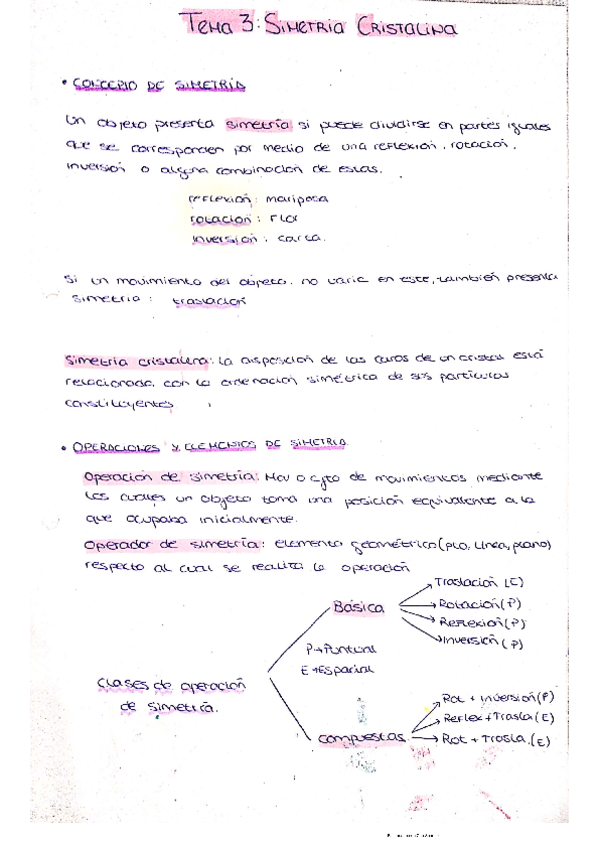 TEMA 3: SIMETRÍA CRISTALINA
• CONCEPTO DE SIMETRÍA
Un objeto presenta simetría si puede dividirse en partes iguales
que se corresponden por medio de una reflexión, rotación,
inversión o alguna combinación de estas.
reflexión: mariposa
rotación: Flor
inversión: carta.
Si un movimiento del objeto no varía en este, también presenta
simetría: traslación
Simetría cristalina: La disposición de las caras de un cristal está
relacionada con la ordenación simétrica de sus partículas
constituyentes
• OPERACIONES Y ELEMENTOS DE SIMETRÍA
Operación de simetría: Mov o cjto de movimientos mediante
los cuales un objeto toma una posición equivalente a la
que ocupaba inicialmente.
Operador de simetría: elemento geométrico (pto, línea, plano)
respecto al cual se realiza la operación
Traslación (E)
Básica
Rotación (P)
Reflexión (P)
Inversión (P)
P→Puntual
E→Espacial
Clases de operación
de simetría.
Rot + Inversión (P)
Reflex + Trasla (E)
compuestas
Rot + Trasla. (E)